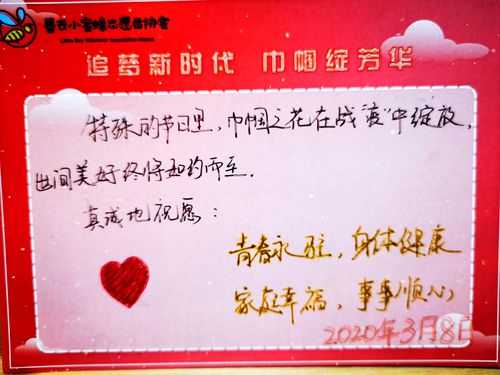 小蜜蜂志愿者协会
追梦新时代 巾帼绽芳华
特殊的节日里，巾帼之花在战"疫"中绽放，
世间美好终将如约而至.
真诚地祝愿：
青春永驻，身体健康
家庭幸福，事事顺心
2020年3月8日